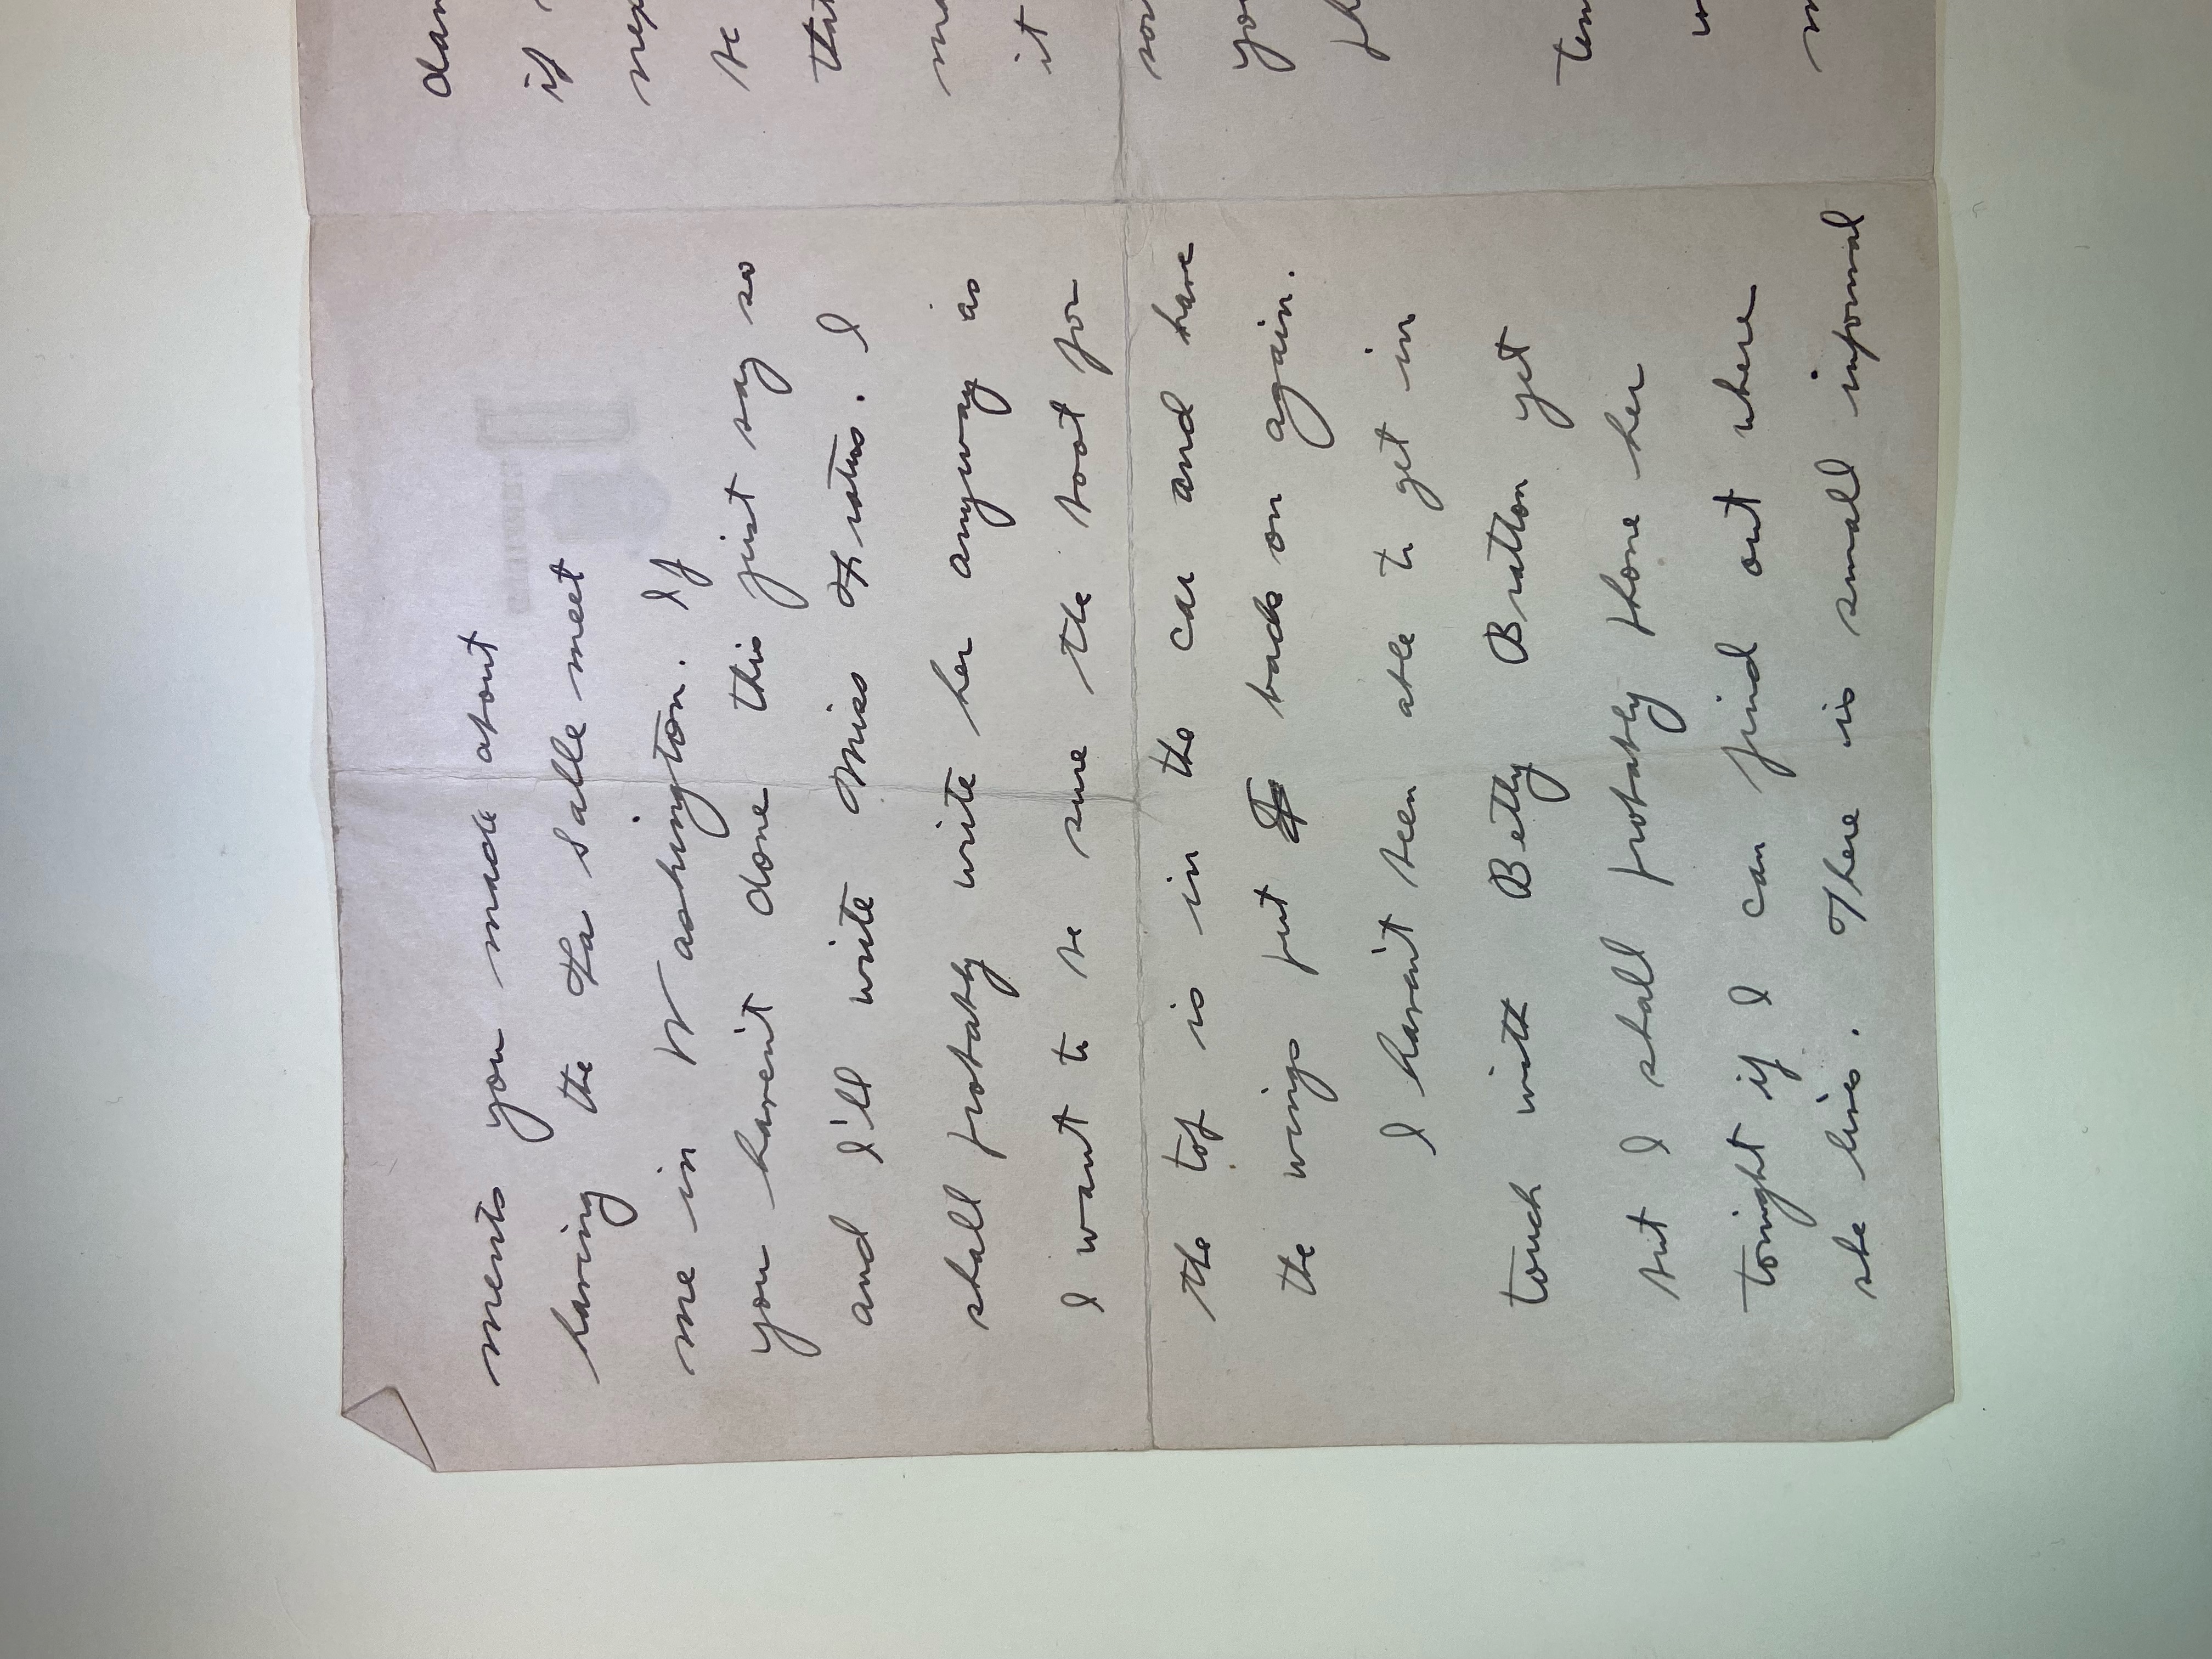 ments you made about
having the La Salle meet
me in Washington. If
you haven't done this just say so
and I'll write Miss Fratus. I
shall probably write her anyway as
I want to be sure the boot for
the top is in the car and have
the wings put back on again.
I haven't been able to get in
touch with Betty Bratton yet
but I shall probably phone her
tonight if I can find out where
she lives. There is small informal
dan
if
nex
be
that
ma
it
sor
you
ph
ten
w
m